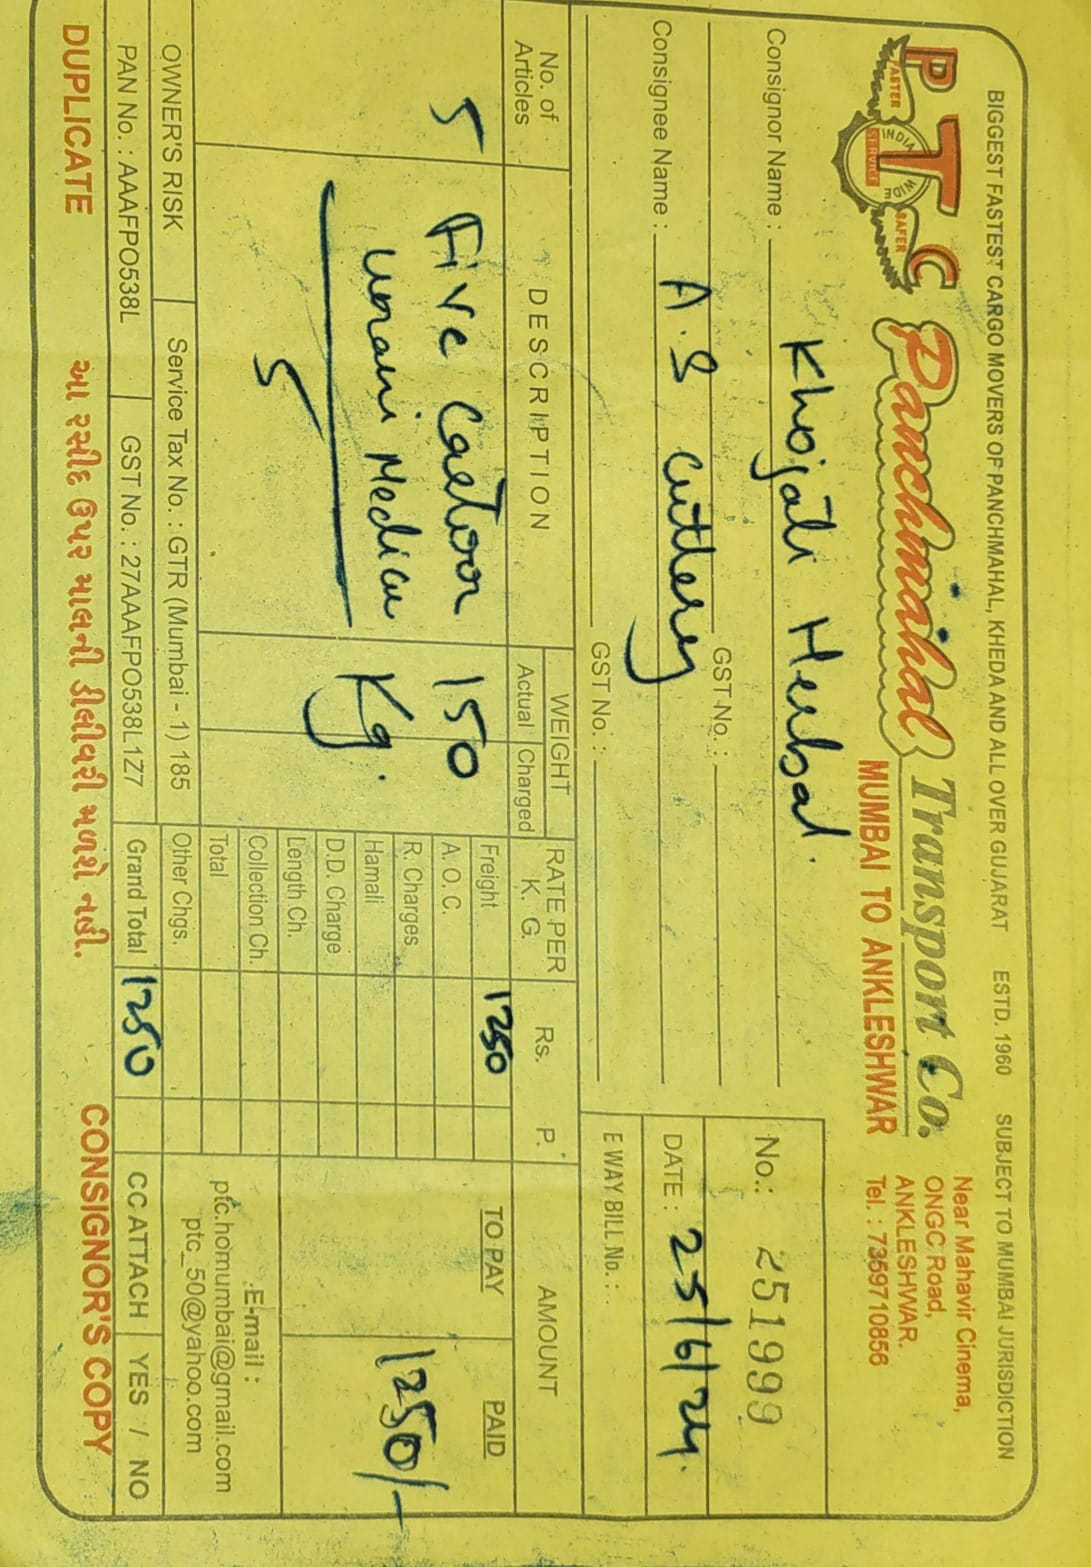 BIGGEST FASTEST CARGO MOVERS OF PANCHMAHAL, KHEDA AND ALL OVER GUJARAT ESTD. 1960 SUBJECT TO MUMBAI JURISDICTION
PTC
FASTER SAFER
INDIA WIDE
SERVICE
Panchmahal Transport Co.
MUMBAI TO ANKLESHWAR
Near Mahavir Cinema,
ONGC Road,
ANKLESHWAR.
Tel. : 7359710856
Consignor Name : Khojati Herbal.
GST No. :
Consignee Name : A.S Cutlery
GST No. :
No.: 251999
DATE : 25/6/24.
E WAY BILL No. :
No. of Articles
DESCRIPTION
WEIGHT
Actual Charged
RATE PER K. G.
Rs. P.
AMOUNT
TO PAY PAID
5 Five Cartoon 150
unani Medicu Kg.
5
Freight 1250
A. O. C.
R. Charges
Hamali
D.D. Charge
Length Ch.
Collection Ch.
Total
Other Chgs.
Grand Total 1250
1250/-
E-mail :
ptc.homumbai@gmail.com
ptc_50@yahoo.com
OWNER'S RISK Service Tax No. : GTR (Mumbai - 1) 185
PAN No. : AAAFPO538L GST No. : 27AAAFPO538L1Z7
CC ATTACH YES / NO
DUPLICATE આ રસીદ ઉપર માલની ડીલીવરી મળશે નહી. CONSIGNOR'S COPY